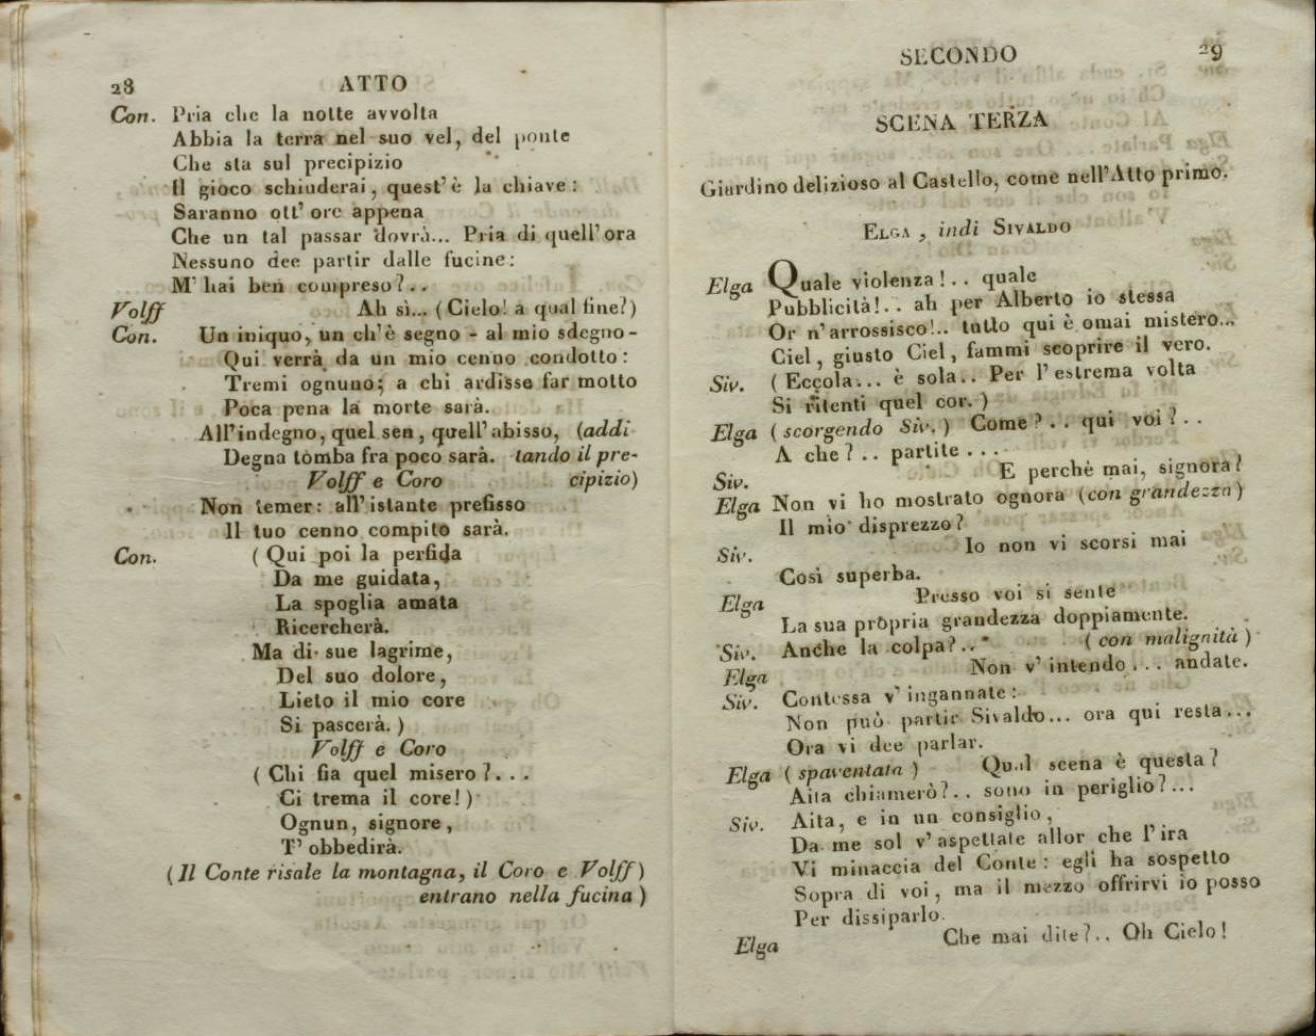 28 ATTO
Con. Pria che la notte avvolta
Abbia la terra nel suo vel, del ponte
Che sta sul precipizio
Il gioco schiuderai, quest'è la chiave:
Saranno ott'ore appena
Che un tal passar dovrà... Pria di quell'ora
Nessuno dee partir dalle fucine:
M'hai ben compreso?..
Volff Ah sì... (Cielo! a qual fine?)
Con. Un iniquo, un ch'è segno - al mio sdegno -
Qui verrà da un mio cenno condotto:
Tremi ognuno; a chi ardisse far motto
Poca pena la morte sarà.
All'indegno, quel sen, quell'abisso, (addi
Degna tomba fra poco sarà. tando il pre-
Volff e Coro cipizio)
Non temer: all'istante prefisso
Il tuo cenno compito sarà.
Con. (Qui poi la perfida
Da me guidata,
La spoglia amata
Ricercherà.
Ma di sue lagrime,
Del suo dolore,
Lieto il mio core
Si pascerà.)
Volff e Coro
(Chi fia quel misero?...
Ci trema il core!)
Ognun, signore,
T'obbedirà.
(Il Conte risale la montagna, il Coro e Volff)
entrano nella fucina)
SECONDO 29
SCENA TERZA
Giardino delizioso al Castello, come nell'Atto primo.
ELGA, indi SIVALDO
Elga Quale violenza!.. quale
Pubblicità!.. ah per Alberto io stessa
Or n'arrossisco!.. tutto qui è omai mistero...
Ciel, giusto Ciel, fammi scoprire il vero.
Siv. (Eccola... è sola.. Per l'estrema volta
Si ritenti quel cor.)
Elga (scorgendo Siv.) Come?.. qui voi?..
A che?.. partite...
Siv. E perchè mai, signora?
Elga Non vi ho mostrato ognora (con grandezza)
Il mio disprezzo?
Siv. Io non vi scorsi mai
Così superba.
Elga Presso voi si sente
La sua propria grandezza doppiamente.
Siv. Anche la colpa?.. (con malignità)
Elga Non v'intendo... andate.
Siv. Contessa v'ingannate:
Non può partir Sivaldo... ora qui resta...
Ora vi dee parlar.
Elga (spaventata) Qual scena è questa?
Aita chiamerò?.. sono in periglio?...
Siv. Aita, e in un consiglio,
Da me sol v'aspettate allor che l'ira
Vi minaccia del Conte: egli ha sospetto
Sopra di voi, ma il mezzo offrirvi io posso
Per dissiparlo.
Elga Che mai dite?.. Oh Cielo!